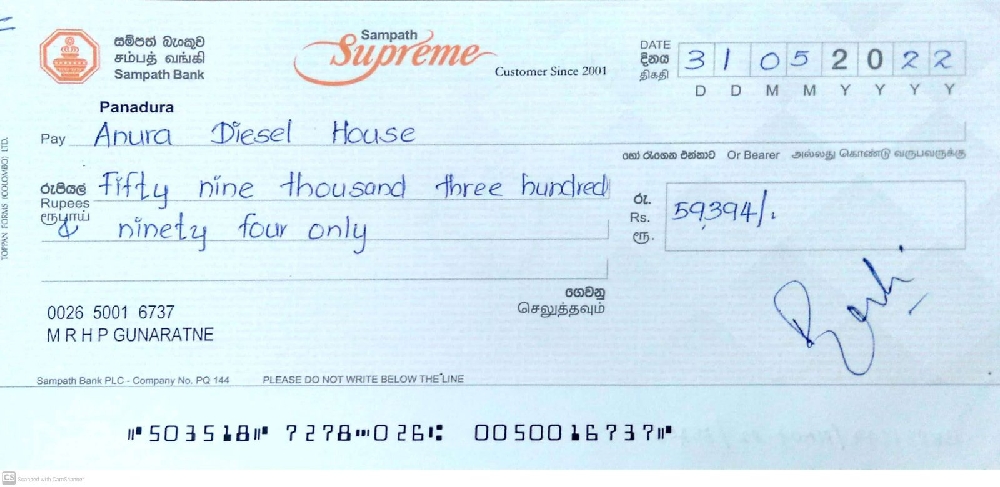 සම්පත් බැංකුව
சம்பத் வங்கி
Sampath Bank
Sampath
Supreme
Customer Since 2001
DATE
දිනය
திகதி
3 1 0 5 2 0 2 2
D D M M Y Y Y Y
Panadura
Pay Anura Diesel House
හෝ රැගෙන එන්නාට Or Bearer அல்லது கொண்டு வருபவருக்கு
රුපියල්
Rupees
ரூபாய்
Fifty nine thousand three hundred
& ninety four only
රු.
Rs.
ரூ.
59,394/.
ගෙවනු
செலுத்தவும்
0026 5001 6737
M R H P GUNARATNE
Sampath Bank PLC - Company No. PQ 144 PLEASE DO NOT WRITE BELOW THE LINE
⑈503518⑈ 7278⑉026⑆ 0050016737⑈
TOPPAN FORMS (COLOMBO) LTD.
CS Scanned with CamScanner